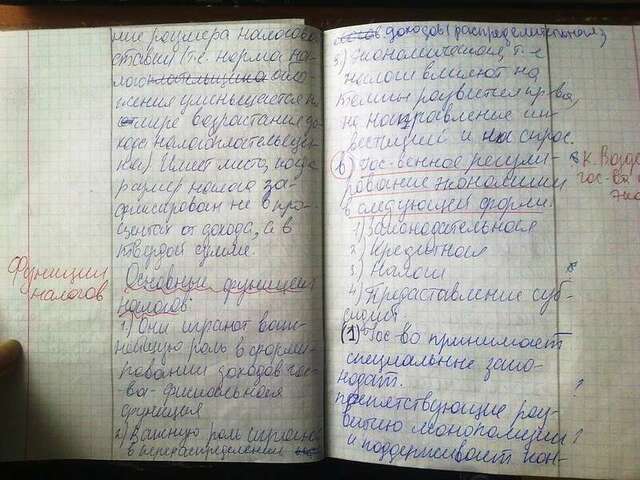 ние размера налогово
ставки (т.е. норма на-
лого обло-
жения уменьшается п
мере возрастания до-
хода налогоплательщи-
ка) Имеет место, когда
размер налога за-
фиксирован не в про-
центах от дохода, а в
твердой сумме.
Функции
налогов
Основные функции
налогов:
1) Они играют важ-
нейшую роль в форми-
ровании доходов гос-
ва- фискальная
функция
2) Важную роль играют
в перераспределении
доходов (распределительная)
3) Экономическая, т.к
налоги влияют на
темпы развития пр-ва,
на направление ин-
вестиций и на спрос.
в) Гос-венное регули-
рование экономики
в следующей форме:
1) Законодательная
2) Кредитная
3) Налоги
4) Предоставление суб-
сидий
К. Возде
гос-ва
эко
(1) Гос-во принимает
специальные зако-
нодат.
препятствующие раз-
витию монополизации
и поддерживает кон-
?
?